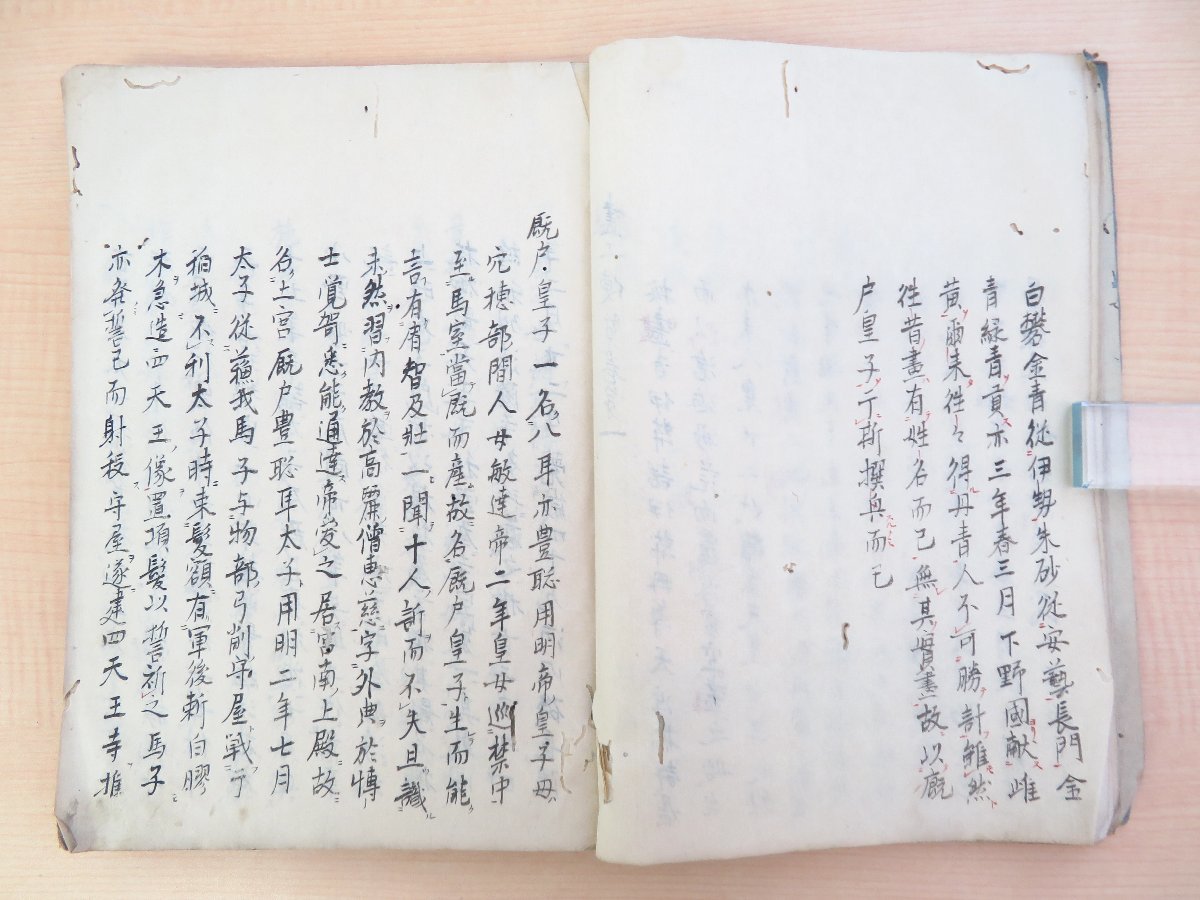 白礬金青從伊勢朱砂從安藝長門金
青緑青貢亦三年春三月下野國献雌
黄爾来往々得丹青人不可勝計雖然
徃昔畫有姓名而已無其實畫故以廐
戸皇子丁斯撰與而已
厩戸皇子一名八耳亦豊聡用明帝皇子母
穴穂部間人母敏達帝二年皇母巡禁中
至馬室當厩而産故名厩戸皇子生而能
言有有智及壮一聞十人訴而不失且識
未然習内教於高麗僧恵慈字外典於博
士覚哿悉能通達帝愛之居宮南上殿故
名上宮厩戸豊聡耳太子用明二年七月
太子從蘓我馬子与物部弓削守屋戦于
稲城不利太子時束髪額有軍後斬白膠
木急造四天王像置項髪以誓祈之馬子
亦発誓已而射殺守屋遂建四天王寺推